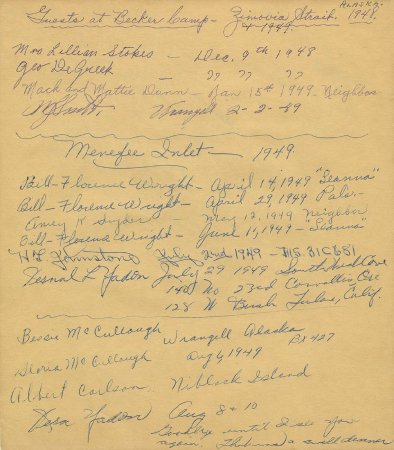 Guests at Becker Camp - Zimovia Strait. Alaska. 1948.
& 1949.
Mrs Lillian Stokes - Dec. 9th 1948
Geo DeGreek - " " "
Mack and Mattie Dunn - Jan 15th 1949. Neighbor
Wrangell 2-2-49
Menefee Inlet - 1949
Bill - Florence Wright - April 14, 1949 "Seanna"
Bill - Florence Wright - April 29, 1949 Pals. -
Amey N Snyder - May 12, 1949 Neighbor
Bill - Florence Wright - June 1, 1949 - "Seanna"
Johnston July 2nd 1949 - MS. 31C681
L Yadon July 29 1949 South
140 No 23rd Corvallis Ore
128 W Bush Calif.
Bessie McCullough Wrangell Alaska
Gloria McCullough Aug 6, 1949 Bx 427
Albert Carlson. Niblack Island
Yadon Aug 8 & 10
Goodbye until I see you
again. a swell dinner